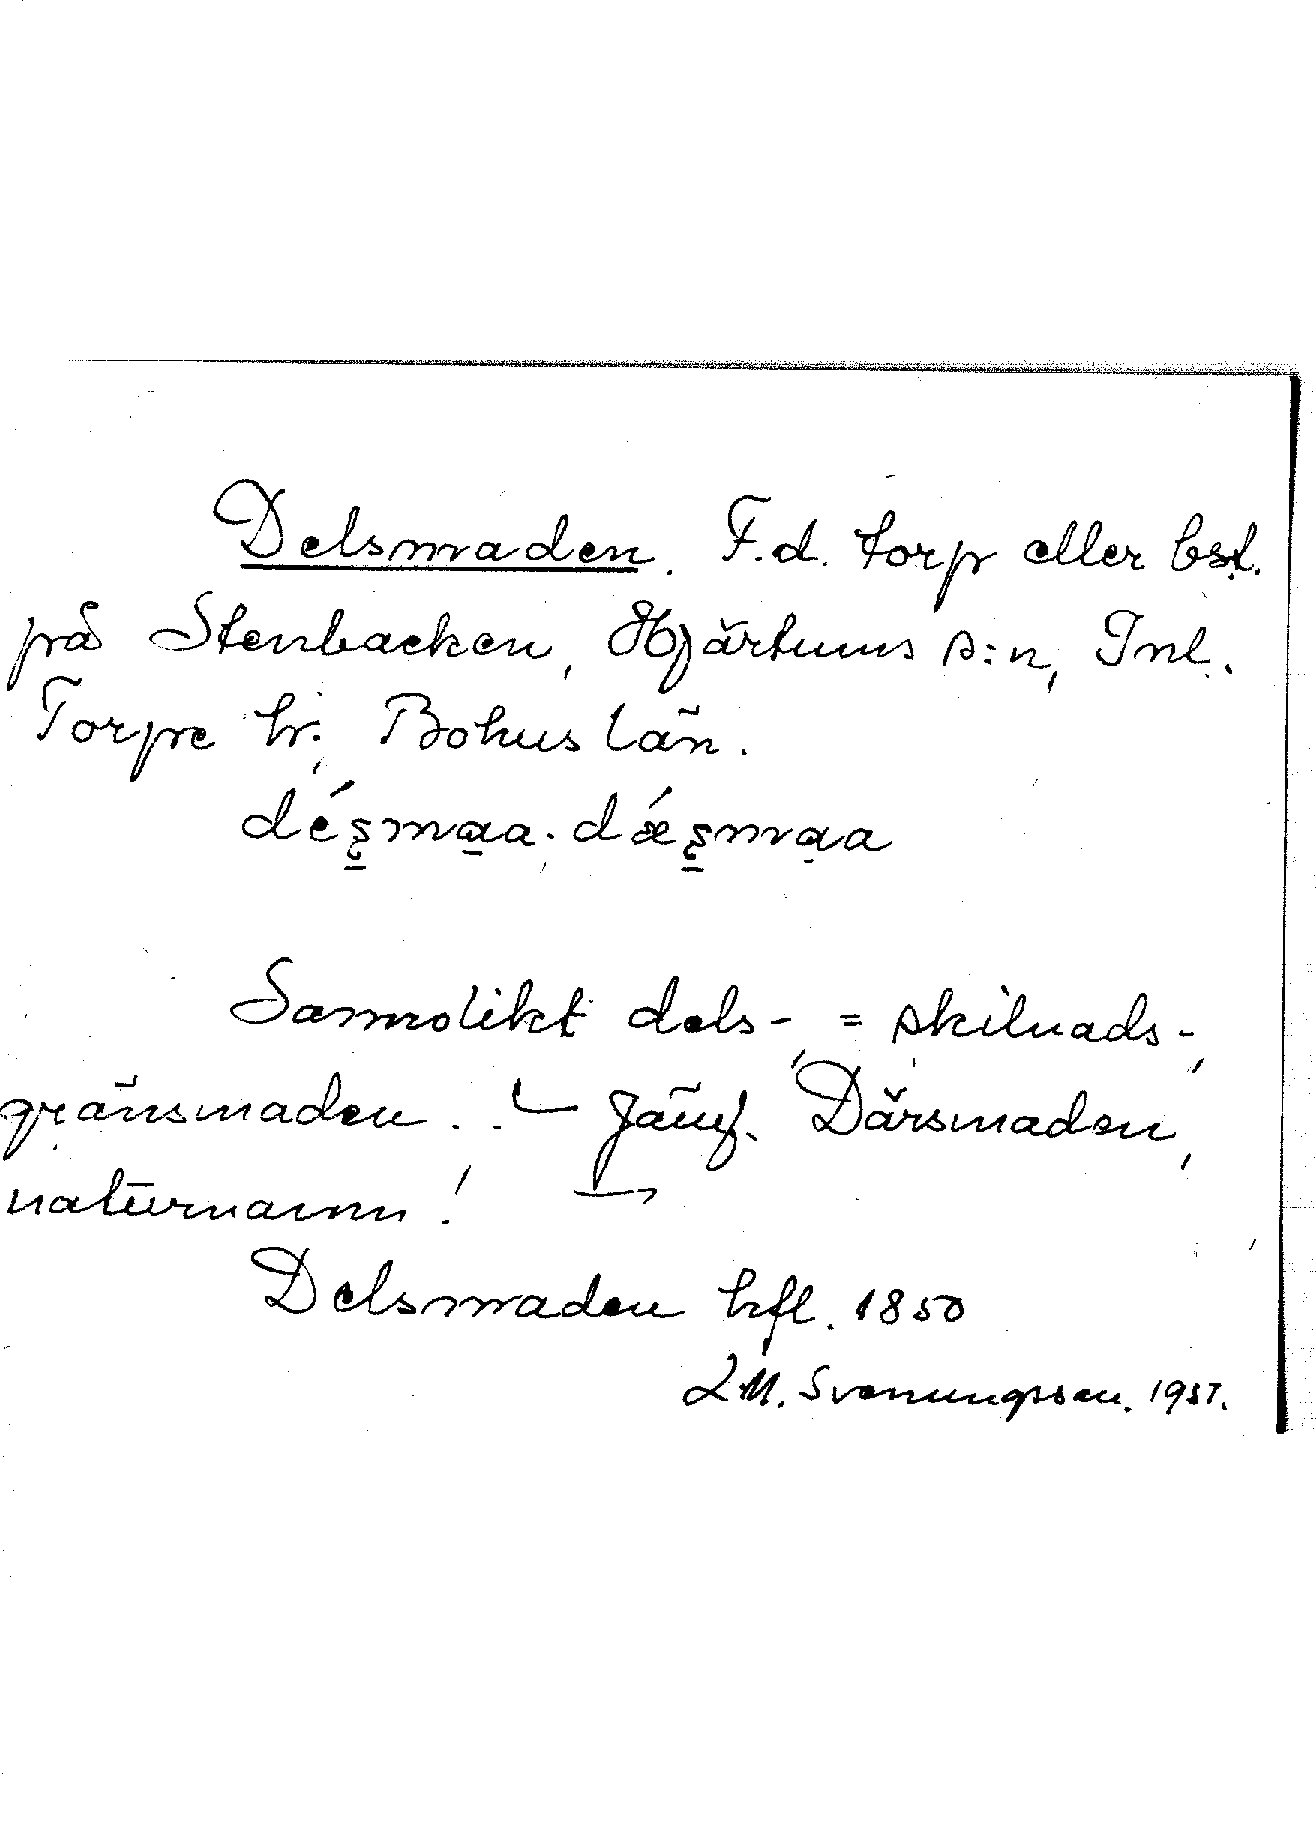 Delsmaden. F.d. torp eller bst.
på Stenbacken, Hjärtums s:n, Inl.
Torpe hr, Bohuslän.
dés̠ma̠a. dǽs̠mạa
Sannolikt dels-, = skilnads-,
gränsmaden. . ⌞ Jämf. Därsmaden,
naturnamn!
Delsmaden hfl. 1850
L M. Svenungsson. 1957.